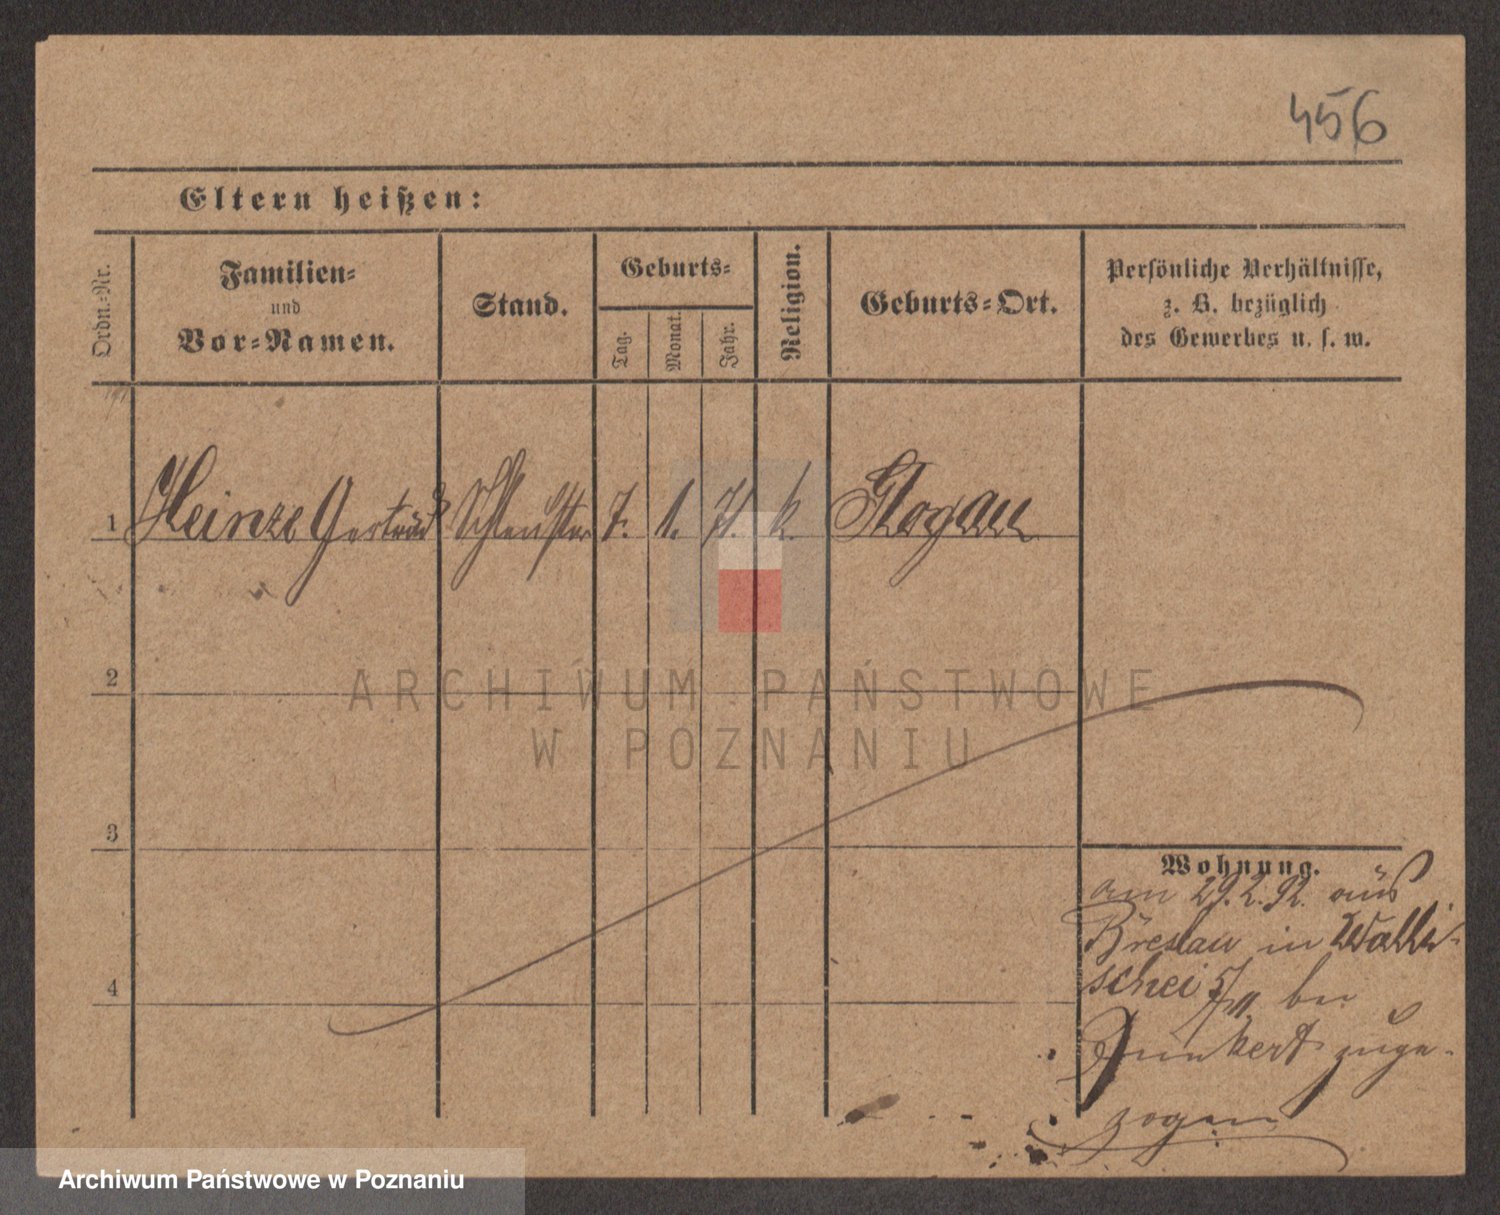 456
Eltern heißen:
Ordn.-Nr.
Familien-
und
Vor-Namen.
Stand.
Geburts-
Tag.
Monat.
Jahr.
Religion.
Geburts-Ort.
Persönliche Verhältnisse,
z. B. bezüglich
des Gewerbes u. s. w.
1 Heinze Gertrud 7. 1. 71. k. Glogau
2
ARCHIWUM PAŃSTWOWE
W POZNANIU
3
4
Wohnung.
am 29.2.92. aus
Breslau in Walli-
schei bei
Dunkert zuge-
zogen
Archiwum Państwowe w Poznaniu